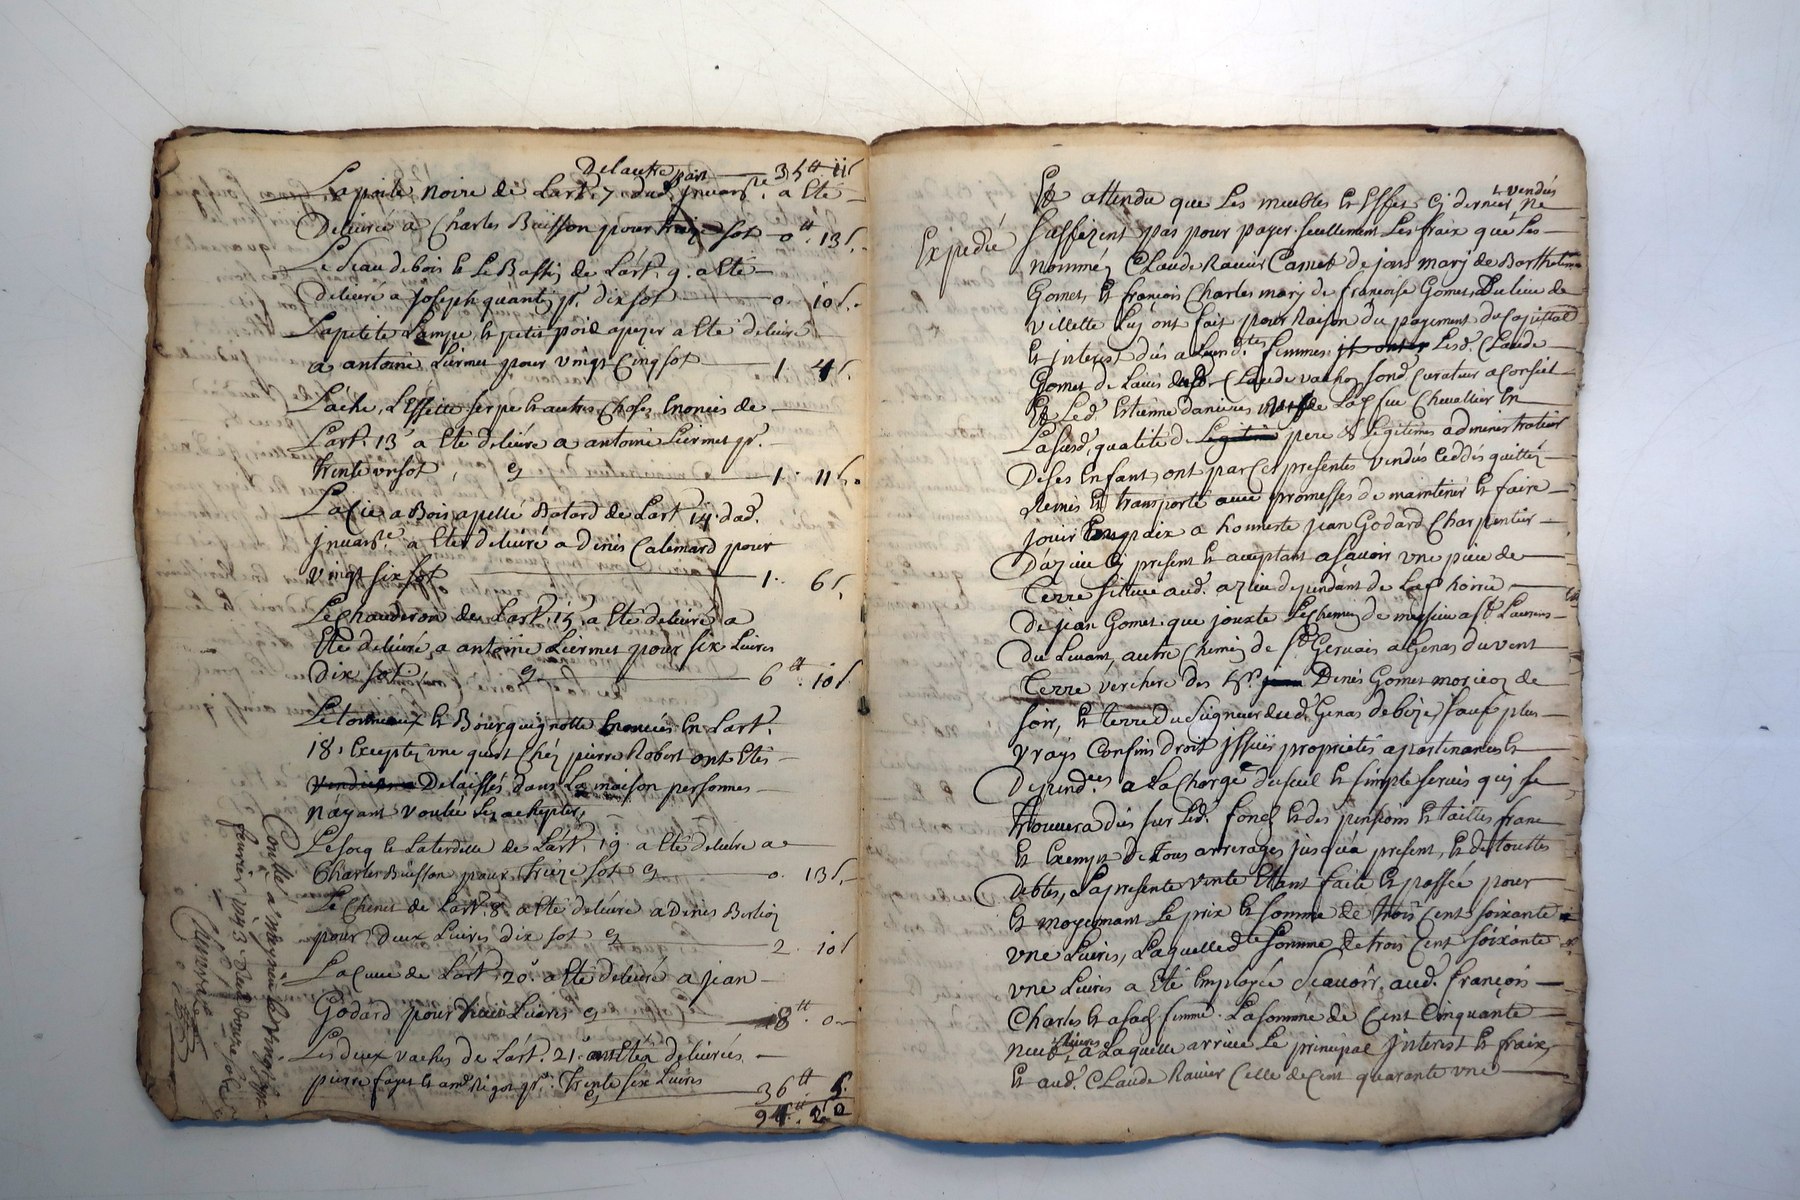 Delautre part — 35 tt 11 s
La poile noire de Lart. 7 dud. jnuan.re a Eté
Deliurée a Charles Buisson pour treize sot — 0 tt 13 s.
Le Seau de bois Et Le Bassin de Lart. 9. a Eté
deliuré a Joseph quantin pr. dix sot — 0. 10 s.
La petite Lampe, Et petit poid a pezer a Eté deliuré
a antoine Liermet pour vingt Cinq sot — 1. 4 s.
Lache, serpe Et autres Choses Enoncés de
Lart. 13 a Eté deliuré a antoine Liermet pr.
trente un sot, Cy — 1. 11 s.
La Cie a Bois apellé Batard de Lart. 14. dad.
jnuan.re a Eté deliuré a Denis Calemard pour
vingt six sot — 1. 6 s.
Le Chauderon de Lart. 15 a Eté deliuré a
Eté deliuré a antoine Liermet pour six Liures
dix sot, Cy — 6 tt. 10 s
Le tonneaux Et Bourguignotte Enoncés En Lart.
18, Excepté une qui est Chéz pierre Robert ont Etés
Delaissés dans La maison personnes
n'ayant voulu Les achepter,
Le socq Et Laterdille de Lart. 19. a Eté deliuré a
Charles Buisson pour Treize sot Cy — 0. 13 s.
Le Chenet de Lart. 8. a Eté deliuré a Denis Berlioz
pour deux Liures dix sot Cy — 2. 10 s
La Cuue de Lart. 20. a Eté deliuré a jean
Godard pour Liures Cy — 18 tt. 0
Les deux vaches de Lart. 21. ont Eté deliurées
pierre fayet Et and. Rigot pr. Trente six Liures
Cy — 36 tt
94 tt. 2
Conllé a Meyzieu le vingt sept
feurier 1713
Expedié
Et attendu que Les meubles Et Effets Cy dernier Et vendus ne
suffizent pas pour payer seullement Les fraix que Les
nommés Claude Rauier Camet de jons mary de Barthelemie
Gomet, Et françois Charles mary de françoise Gomet du lieu de
villette Luy ont fait pour Raison du payement du Capital
Et jnterest dûs a Leursd.tes femmes Lesd. Claude
Gomet de Lauis dud. Claude vachon sond. Curateur a Conseil
Et Led. Estienne danieres de La feue Cheuallier En
La susd. qualité de pere & Legitimes administrateur
De ses Enfant, ont par Ces presentes vendus Ceddés quitté
Remis Et transporté auec promesses de maintenir Et faire
jouir En paix a honneste jean Godard Charpentier
D'azieu Cy present Et acceptant a scauoir une piece de
Terre situee aud. azieu dependant de La hoirie
De jean Gomet que jouxte Le Chemin de meyzieu a St. Laurens
Du Leuant, autre Chemin de St. Geruais a Genas du vent
Terre verchere des hrs. Denis Gomet morieoz de
soir, Et terre du Seigneur dud. Genas de bize sauf plus
vrays Confins droit jssuës proprietés apartenances Et
Depend.ces a La Charge du seul Et simple seruis qui se
trouuera dûs sur Led. fond Et des pensions Et tailles franc
Et Exempt De tous arrerages jusqu'a present, Et de touttes
debtes, La presente vente Etant faite Et passée pour
Et moyennant Le prix Et somme de trois Cent soixante
une Liures, Laquelle d.te somme de trois Cent soixante
une Liures a Eté Employée Scauoir, aud. françois
Charles Et a sad. femme. La somme de Cent Cinquante
neuf Liures, a Laquelle arriue Le principal jnterest Et fraix,
Et aud. Claude Rauier Celle de Cent quarante une